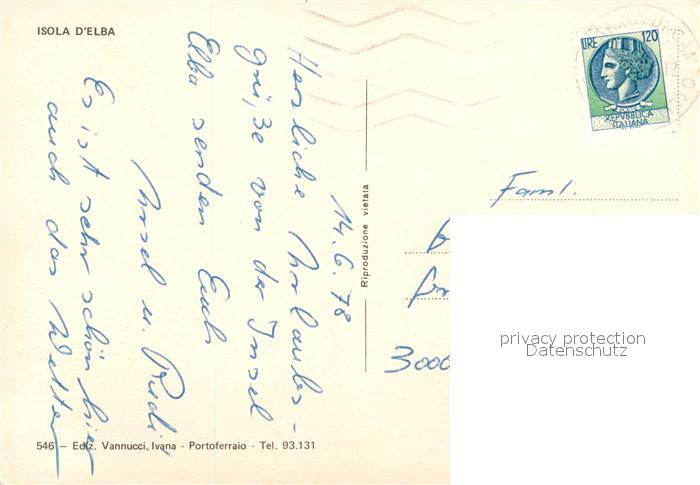 ISOLA D'ELBA
LIRE 120
REPVBBLICA
ITALIANA
14.6.78
Herzliche Urlaubs-
grüße von der Insel
Elba senden Euch
Ursel u. Rudi
Es ist sehr schön hier
auch das Wetter
Riproduzione vietata
Faml.
3000
privacy protection
Datenschutz
546 - Ediz. Vannucci, Ivana - Portoferraio - Tel. 93.131